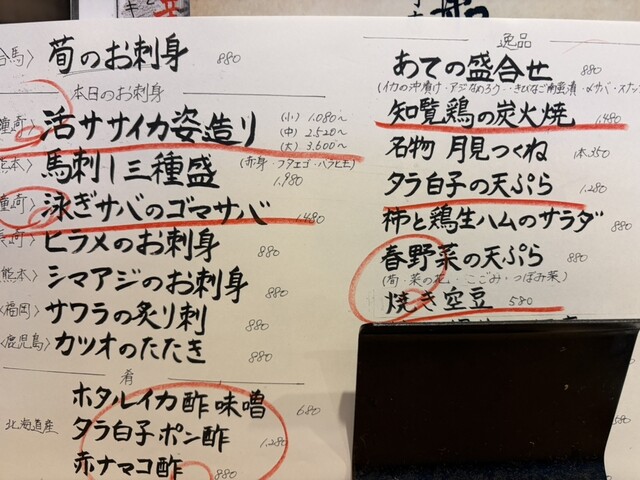 合馬〉筍のお刺身 880
本日のお刺身
活ササイカ姿造り (小) 1.080〜
(中) 2.520〜
(大) 3.600〜
熊本〉馬刺し三種盛 (赤身・フタエゴ・バラヒモ)
1.980
泳ぎサバのゴマサバ 1.480
ヒラメのお刺身 880
熊本〉シマアジのお刺身 880
〈福岡〉サワラの炙り刺 880
〈鹿児島〉カツオのたたき 880
肴
北海道産
ホタルイカ酢味噌 680
タラ白子ポン酢 1.280
赤ナマコ酢 880
逸品
あての盛合せ 880
(イカの沖漬け・アジなめろう・きびなご南蛮漬・〆サバ・スナッ
知覧鶏の炭火焼 1.480
名物 月見つくね 1本350
タラ白子の天ぷら 1.280
柿と鶏生ハムのサラダ 880
春野菜の天ぷら 880
(筍・菜の花・こごみ・つぼみ菜)
焼き空豆 580
580